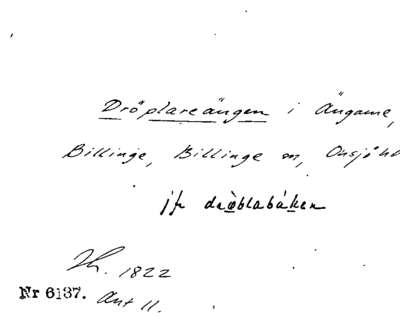 Dröplareängen i Ängarne,
Billinge, Billinge sn, Onsjö hd
jfr dröblabáken
Th. 1822
Nr 6137. Ant 11.